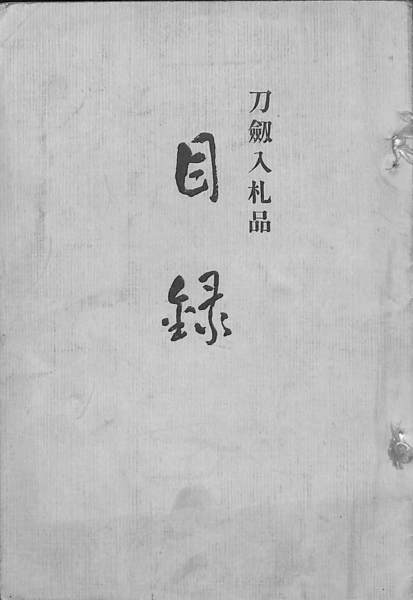 刀劔入札品
目録